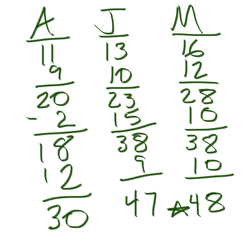 A J M
11 13 16
9 10 12
20 23 28
-2 15 10
18 38 38
12 9 10
30 47 ★48